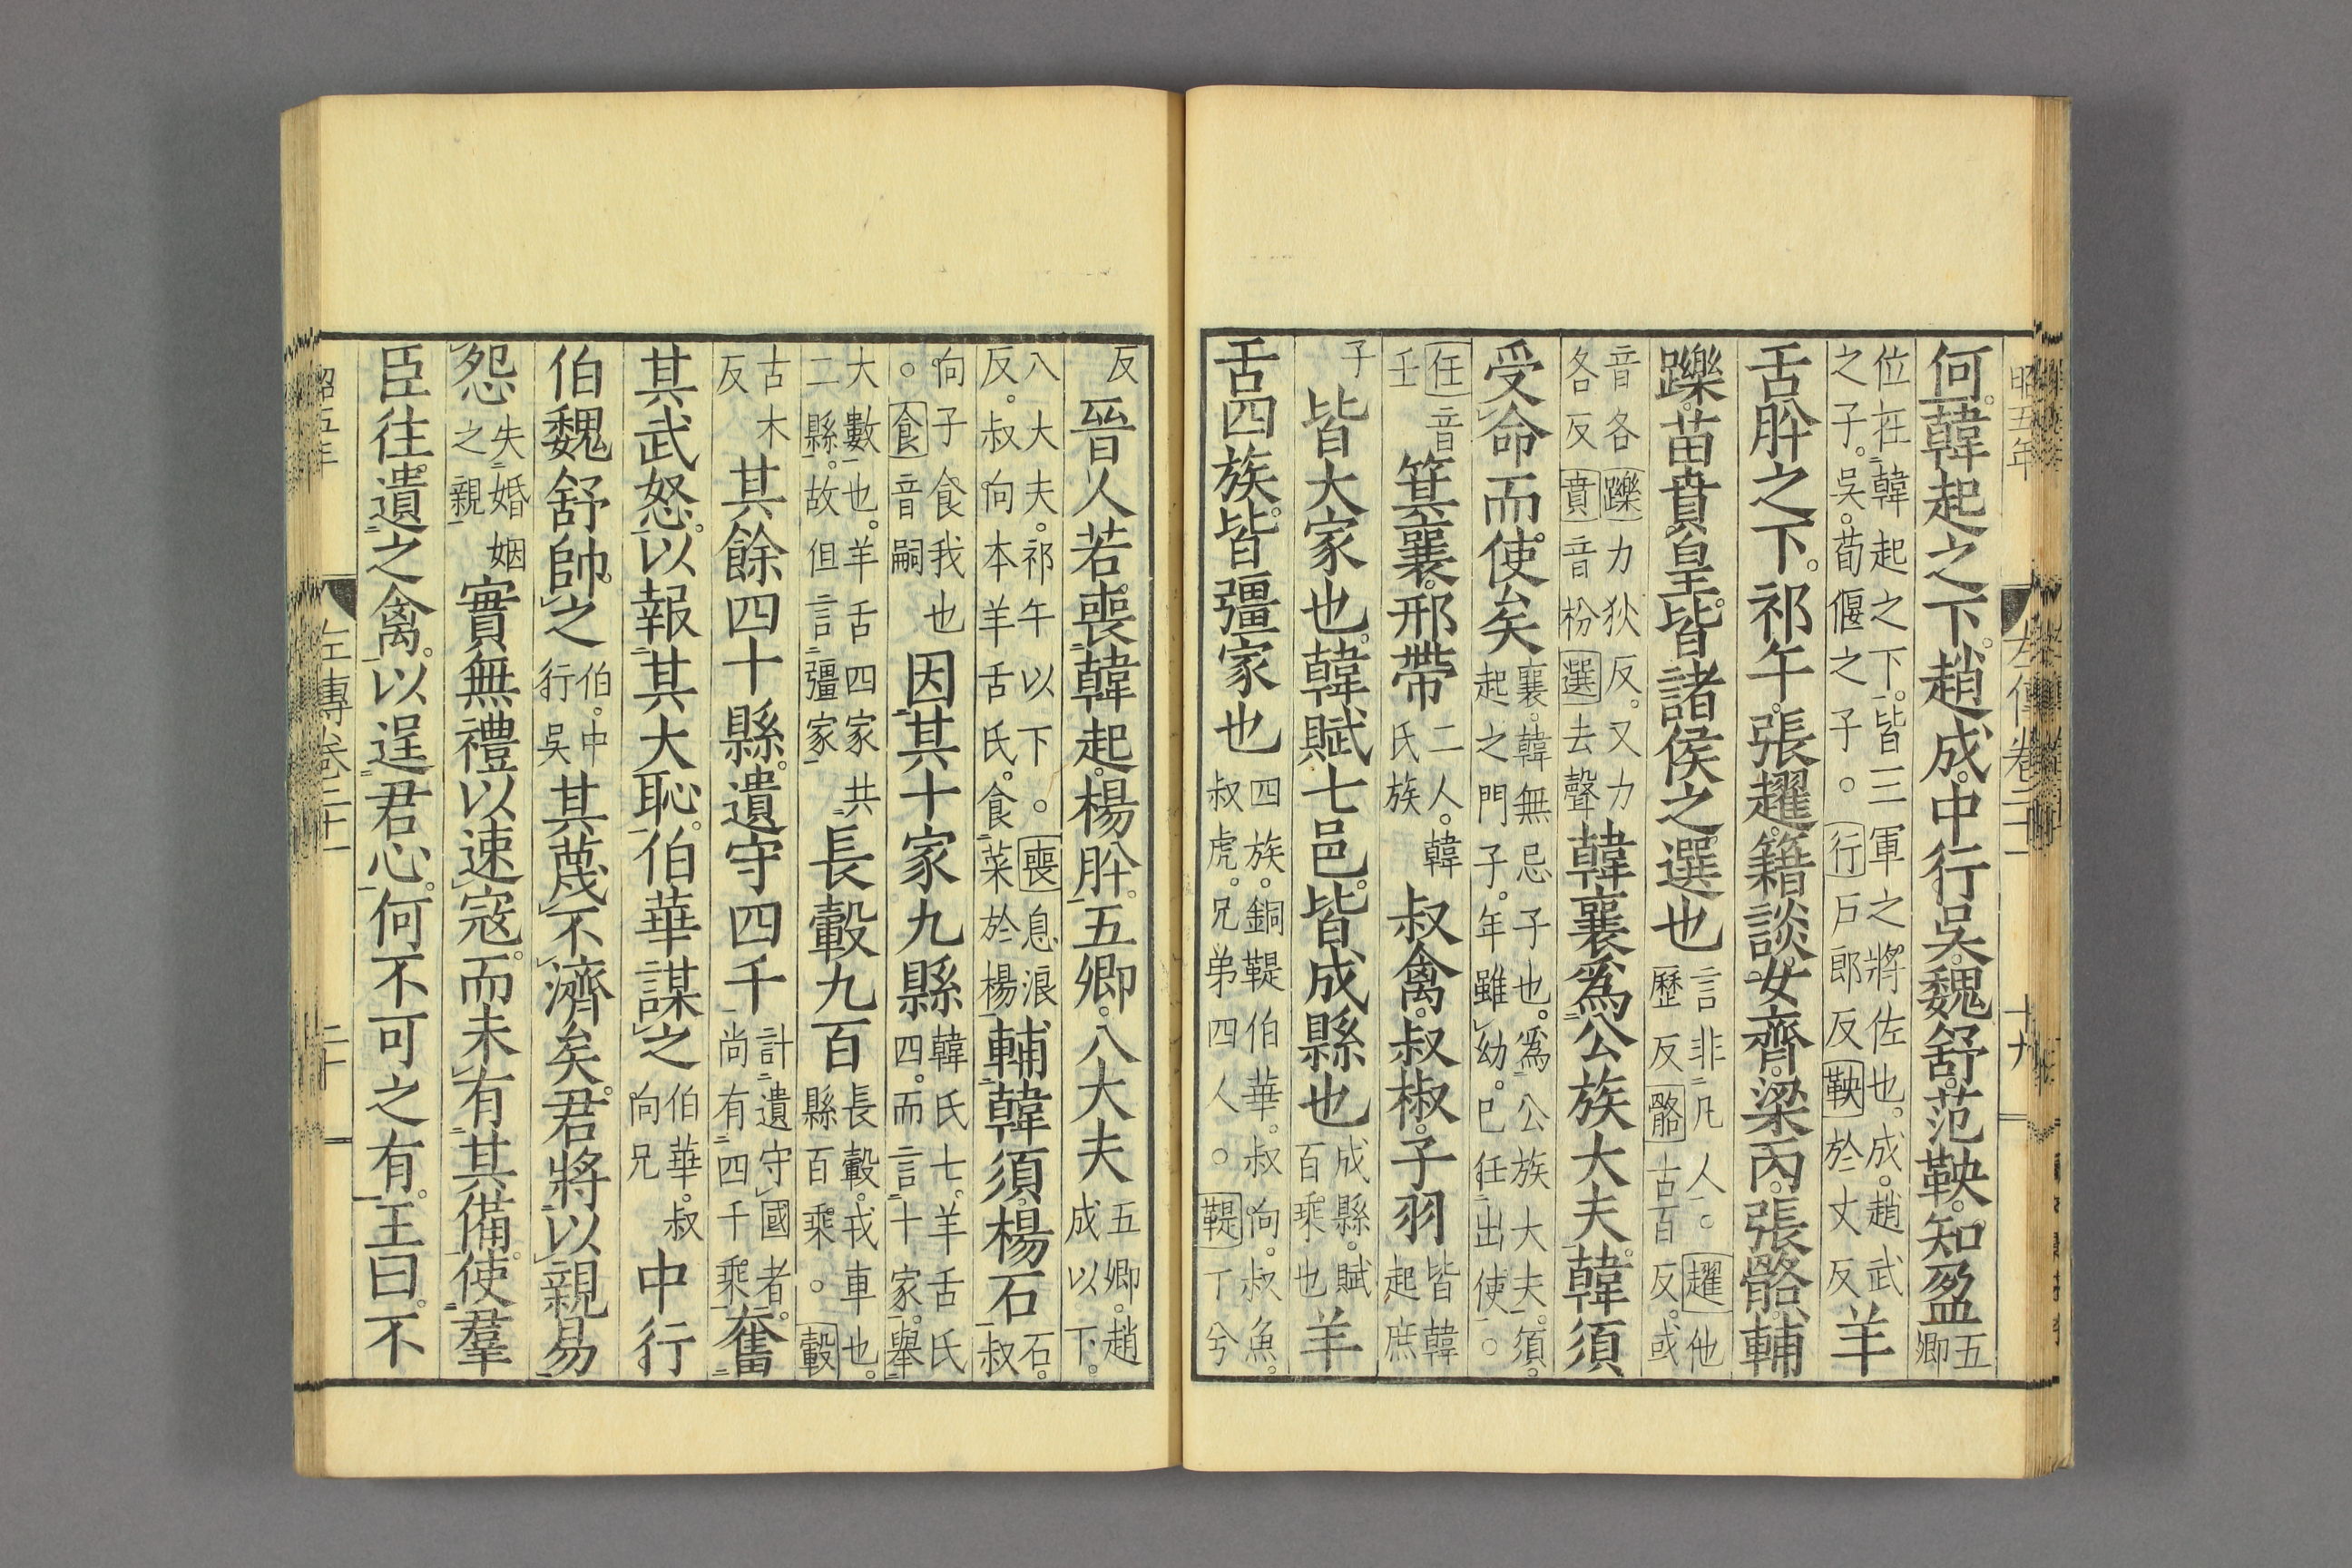 昭五年 左傳卷二十一 十九
何。韓起之下。趙成。中行吳。魏舒。范鞅。知盈五卿
位在韓起之下。皆三軍之將佐也。成。趙武之子。吳。荀偃之子。行戶郎反鞅於丈反羊
舌肸之下。祁午。張趯。籍談。女齊。梁丙。張骼。輔
躒。苗賁皇。皆諸侯之選也言非凡人。趯他歷反骼古百反。或
音各躒力狄反。又力各反賁音枌選去聲韓襄爲公族大夫。韓須
受命而使矣襄。韓無忌子也。爲公族大夫。須。起之門子。年雖幼。已任出使。
任音壬箕襄。邢帶二人。韓氏族叔禽。叔椒。子羽皆韓起庶
子皆大家也。韓賦七邑。皆成縣也成縣。賦百乘也羊
舌四族。皆彊家也四族。銅鞮伯華。叔向。叔魚。叔虎。兄弟四人。鞮丁兮
反晉人若喪韓起。楊肸。五卿。八大夫五卿。趙成以下。
八大夫。祁午以下。喪息浪反。叔向本羊舌氏。食菜於楊輔韓須。楊石石。叔
向子食我也。食音嗣因其十家九縣韓氏七。羊舌氏四。而言十家。舉
大數也。羊舌四家共二縣。故但言彊家長轂九百長轂。戎車也。縣百乘。轂
古木反其餘四十縣。遺守四千計遺守國者。尚有四千乘奮
其武怒。以報其大恥。伯華謀之伯華。叔向兄中行
伯魏舒帥之伯。中行吳其蔑不濟矣。君將以親易
怨失婚姻之親實無禮以速寇。而未有其備。使羣
臣往遺之禽。以逞君心。何不可之有。王曰。不
昭五年 左傳卷二十一 二十